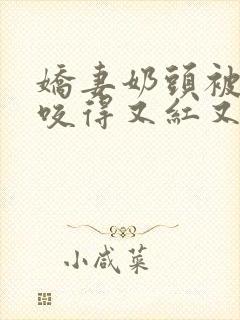 嬌妻奶頭被
咬得又紅又
小咸菜